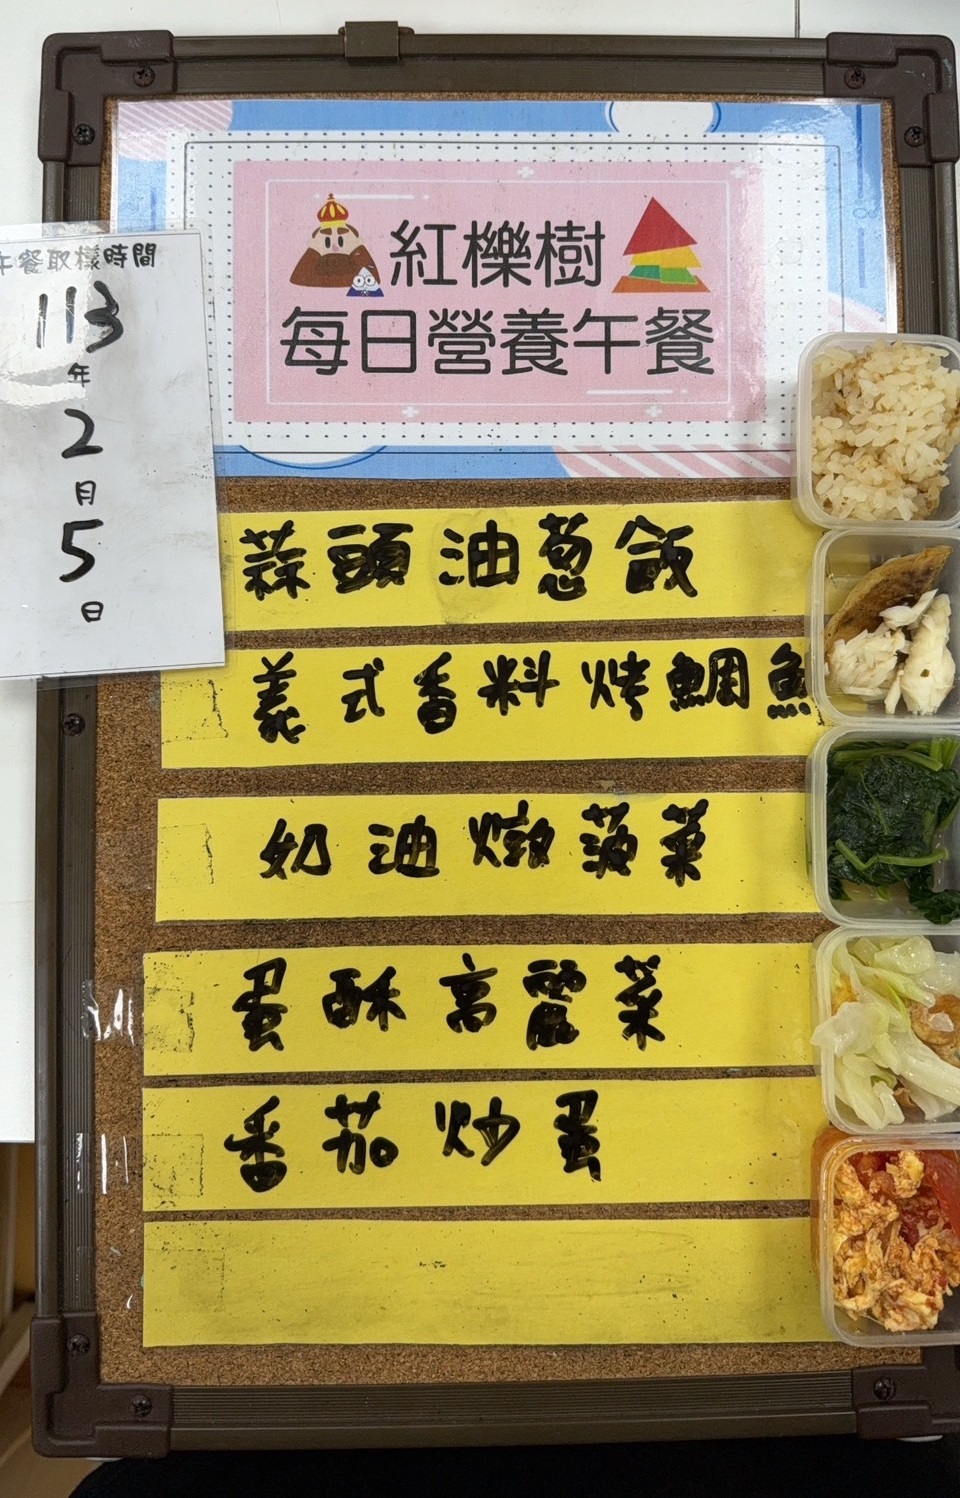 紅櫟樹
每日營養午餐
午餐取樣時間
113
年
2
月
5
日
蒜頭油蔥飯
義式香料烤鯛魚
奶油燉菠菜
蛋酥高麗菜
番茄炒蛋